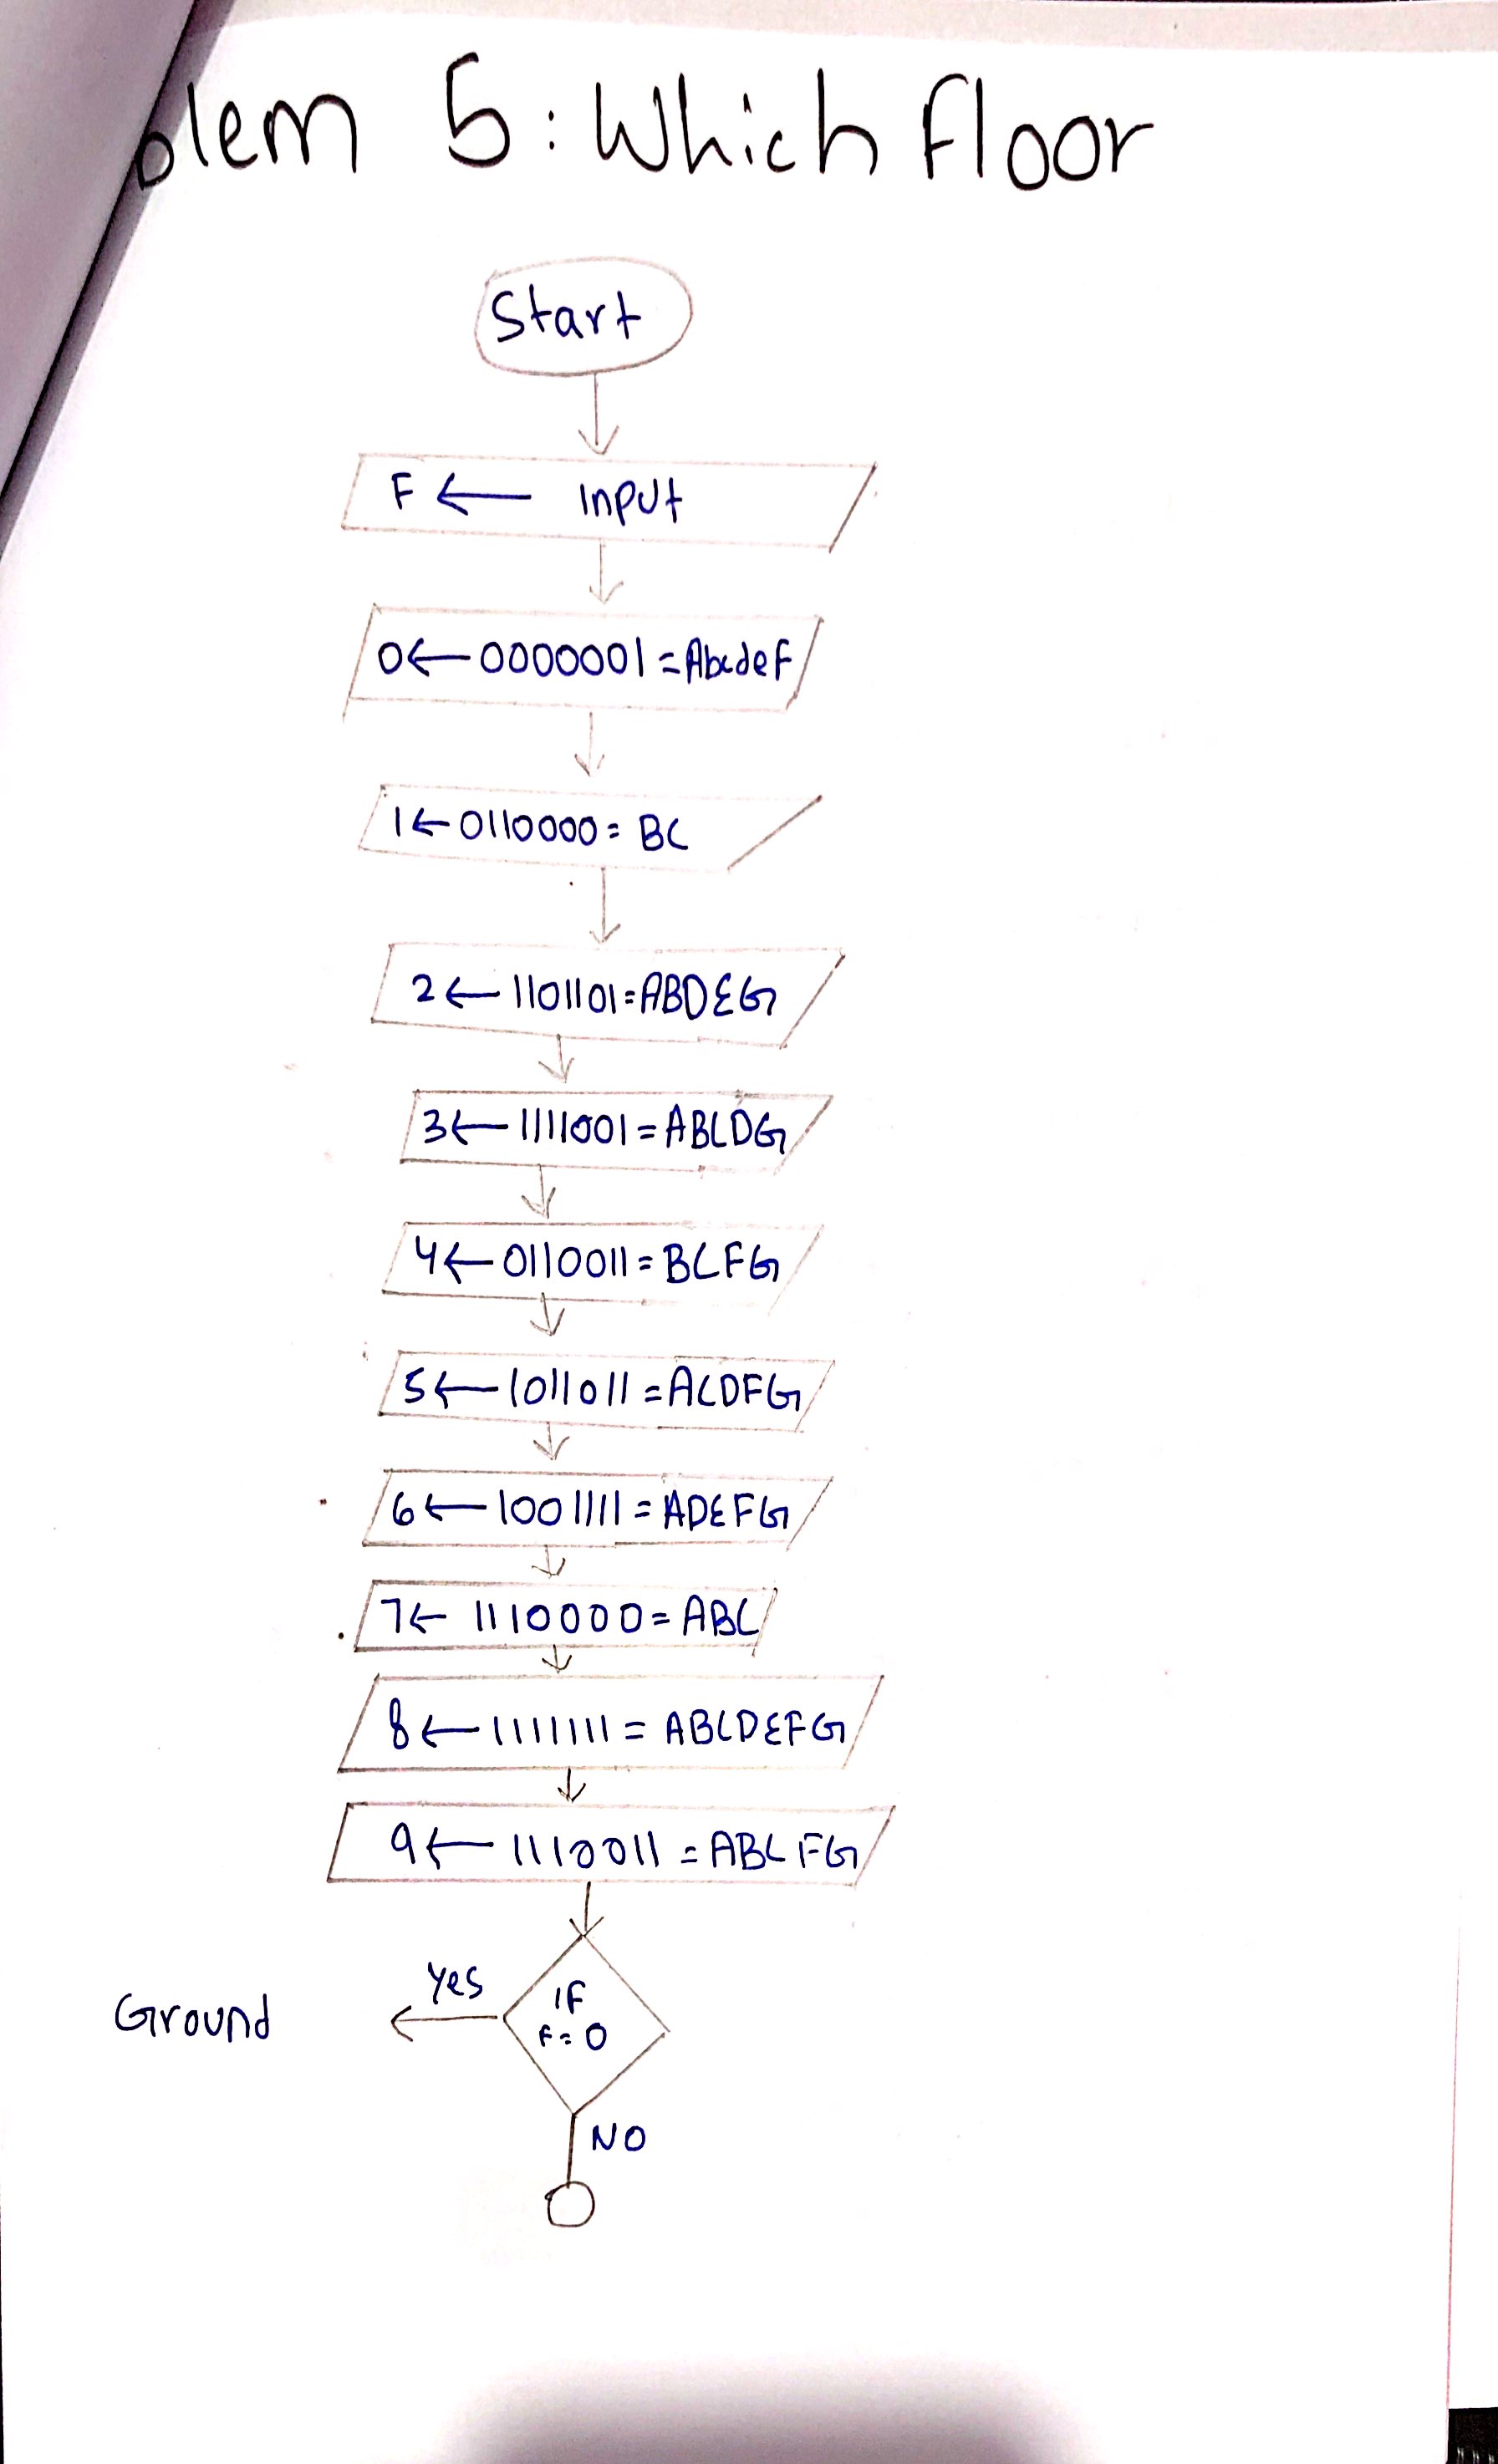 blem 5: Which Floor
Start
F ← Input
0 ← 0000001 = Abcdef
1 ← 0110000 = BC
2 ← 1101101 = ABDEG
3 ← 1111001 = ABCDG
4 ← 0110011 = BCFG
5 ← 1011011 = ACDFG
6 ← 1001111 = ADEFG
7 ← 1110000 = ABC
8 ← 1111111 = ABCDEFG
9 ← 1110011 = ABCFG
Yes
IF
Ground
F = 0
NO